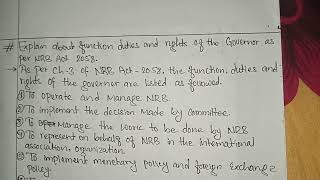 # Explain about function duties and rights of the Governor as
per NRB Act 2058.
→ As per Ch-3 of NRB Act-2058, the function, duties and
rights of the Governor are listed as followed.
1) To operate and Manage NRB.
2) To implement the decision Made by Committee.
3) To Manage the work to be done by NRB
4) To represent on behalf of NRB in the international
association, organization.
5) To implement monetary policy and foreign Exchange
policy.